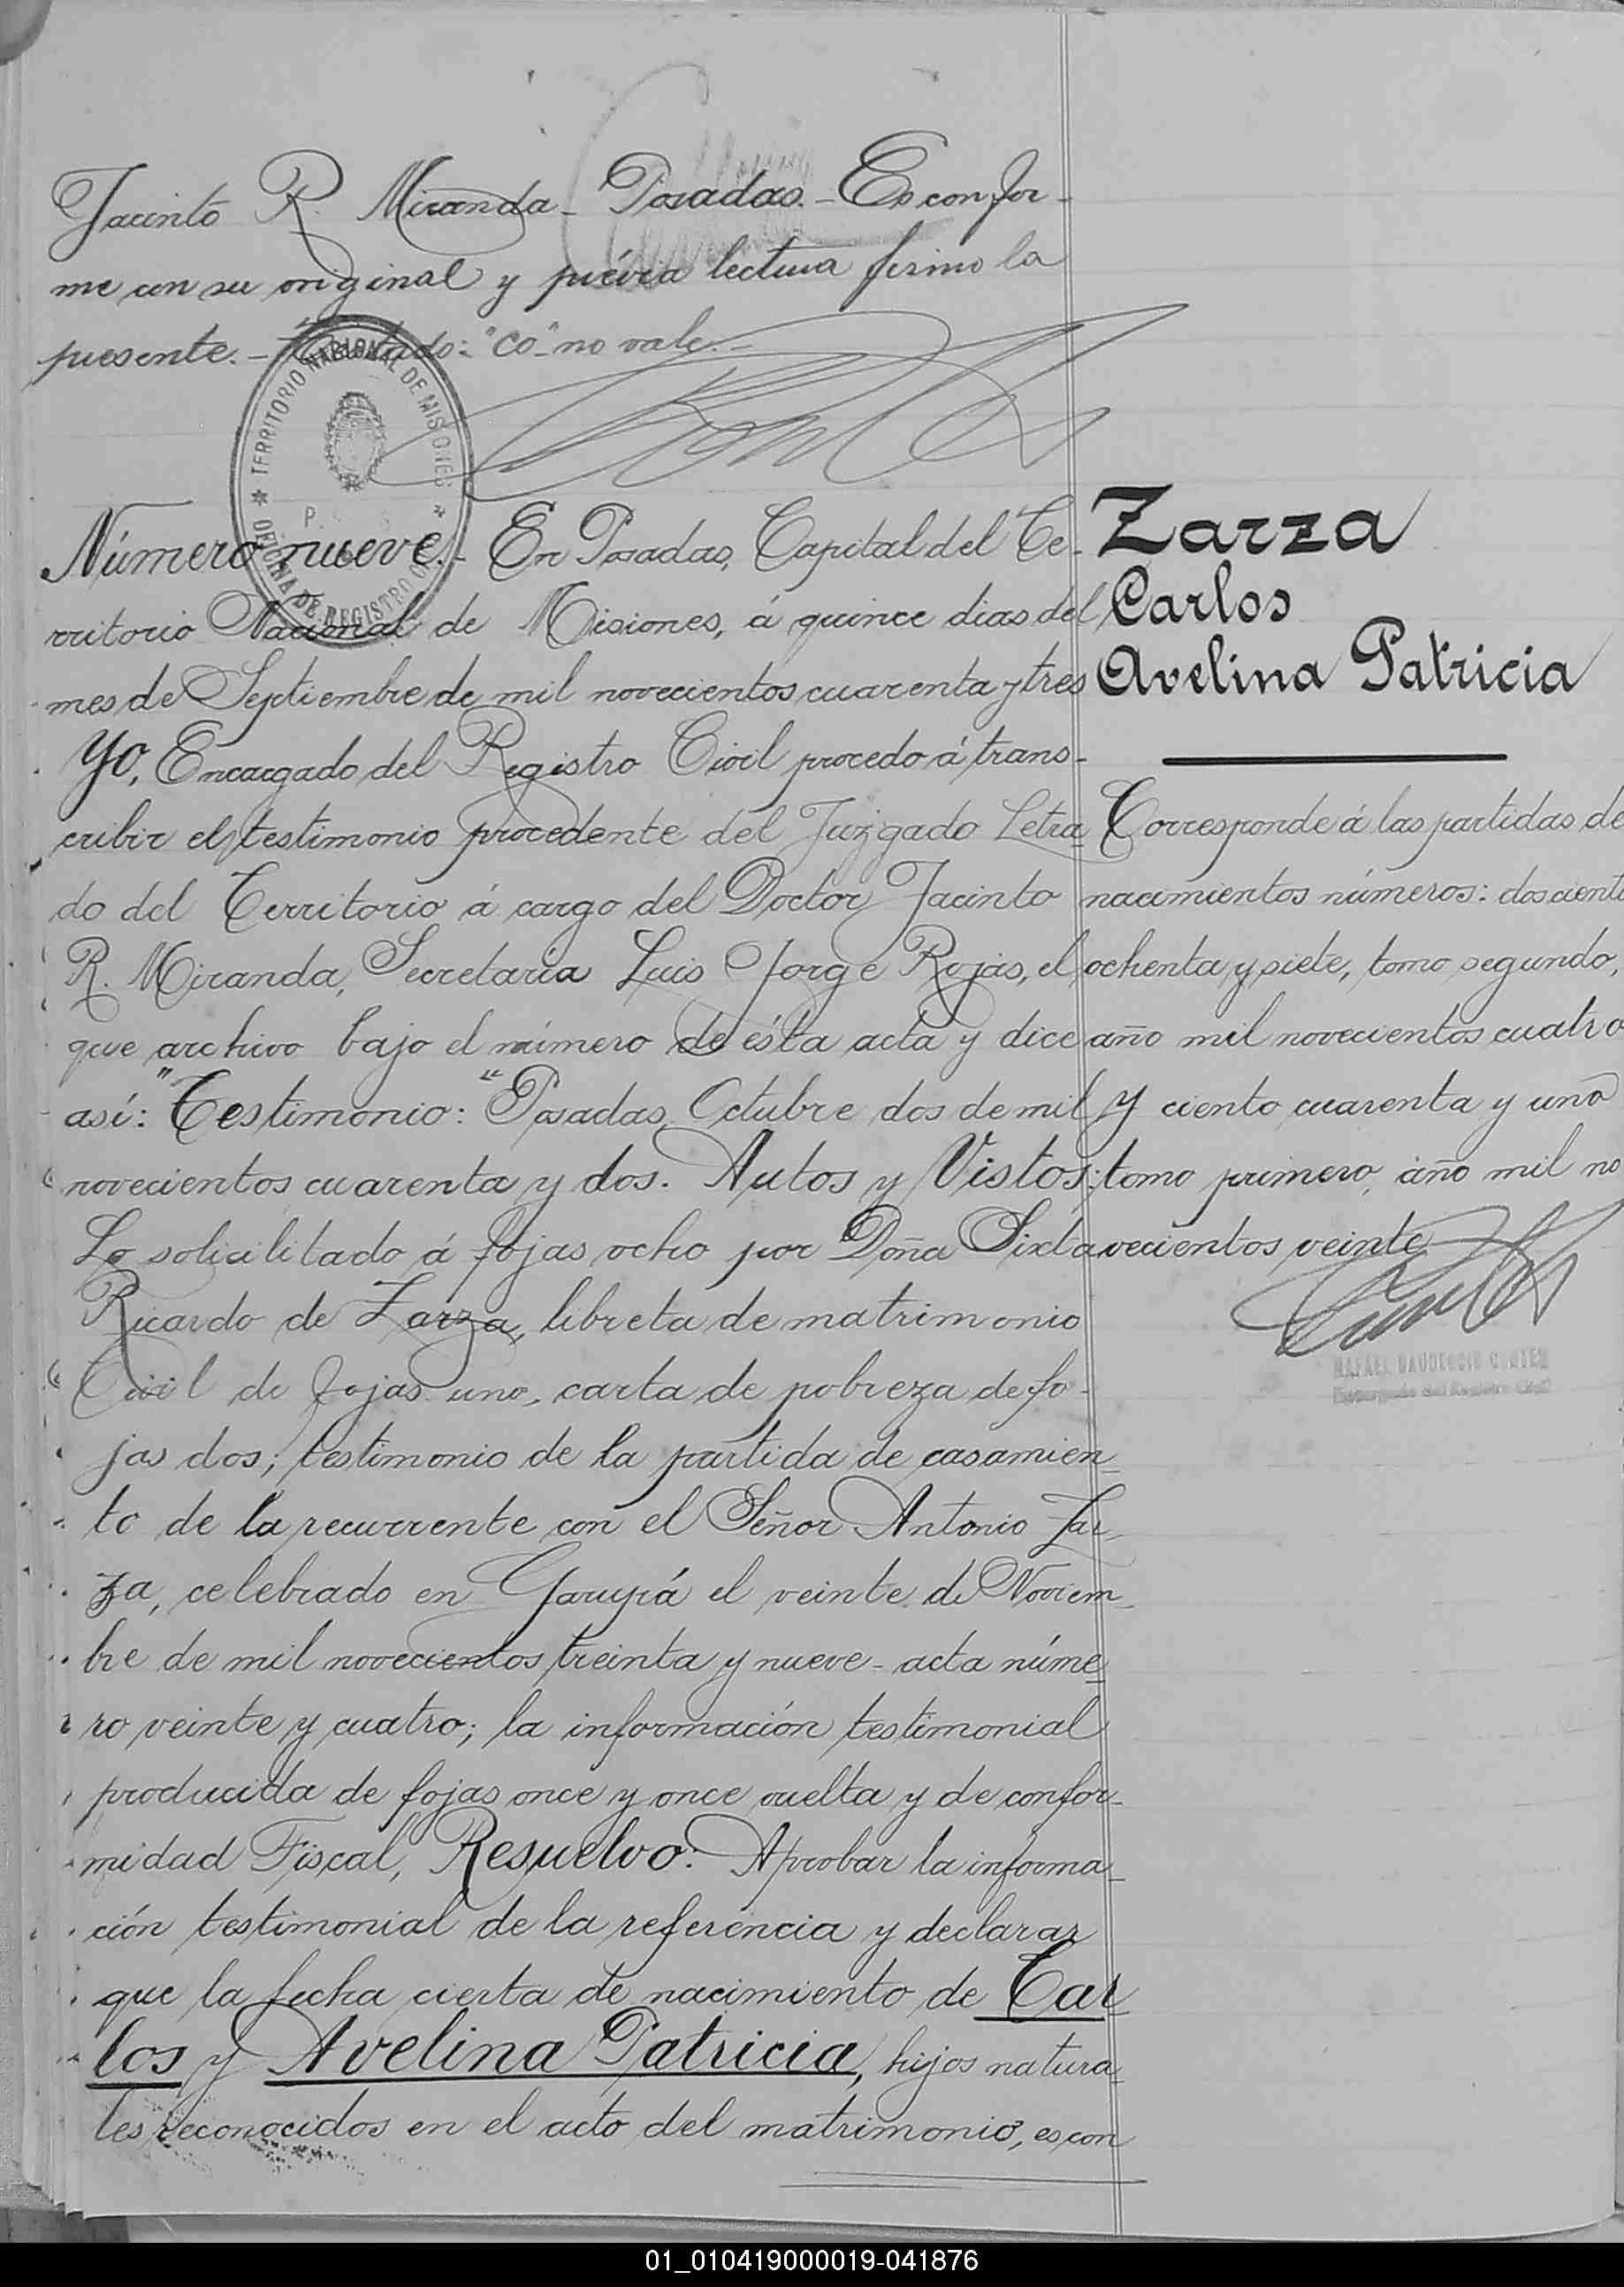 Jacinto R. Miranda - Posadas. - Es confor-
me con su original y prévia lectura firmo la
presente. - Testado: "co" no vale. -
TERRITORIO NACIONAL DE MISIONES
OFICINA DE REGISTRO
Número nueve. - En Posadas, Capital del Te-
rritorio Nacional de Misiones, á quince dias del
mes de Septiembre de mil novecientos cuarenta y tres
Yo, Encargado del Registro Civil procedo á trans-
cribir el testimonio procedente del Juzgado Letra-
do del Territorio á cargo del Doctor Jacinto
R. Miranda, Secretaría Luis Jorge Rojas, el
que archivo bajo el número de ésta acta y dice
así: "Testimonio: "Posadas, Octubre dos de mil
novecientos cuarenta y dos. Autos y Vistos:
Lo solicilitado á fojas ocho por Doña Sixta
Ricardo de Zarza, libreta de matrimonio
Civil de fojas uno, carta de pobreza de fo-
jas dos; testimonio de la partida de casamien-
to de la recurrente con el Señor Antonio Zar-
za, celebrado en Garupá el veinte de Noviem-
bre de mil novecientos treinta y nueve - acta núme-
ro veinte y cuatro; la información testimonial
producida de fojas once y once vuelta y de confor-
midad Fiscal, Resuelvo: Aprobar la informa-
ción testimonial de la referencia y declarar
que la fecha cierta de nacimiento de Car-
los y Avelina Patricia, hijos natura-
les reconocidos en el acto del matrimonio, es con
Zarza
Carlos
Avelina Patricia
Corresponde á las partidas de
nacimientos números: doscient
ochenta y siete, tomo segundo,
año mil novecientos cuatro
y ciento cuarenta y uno
tomo primero, año mil no
vecientos veinte
RAFAEL GAUDENCIO
Encargado del Registro Civil
01_010419000019-041876